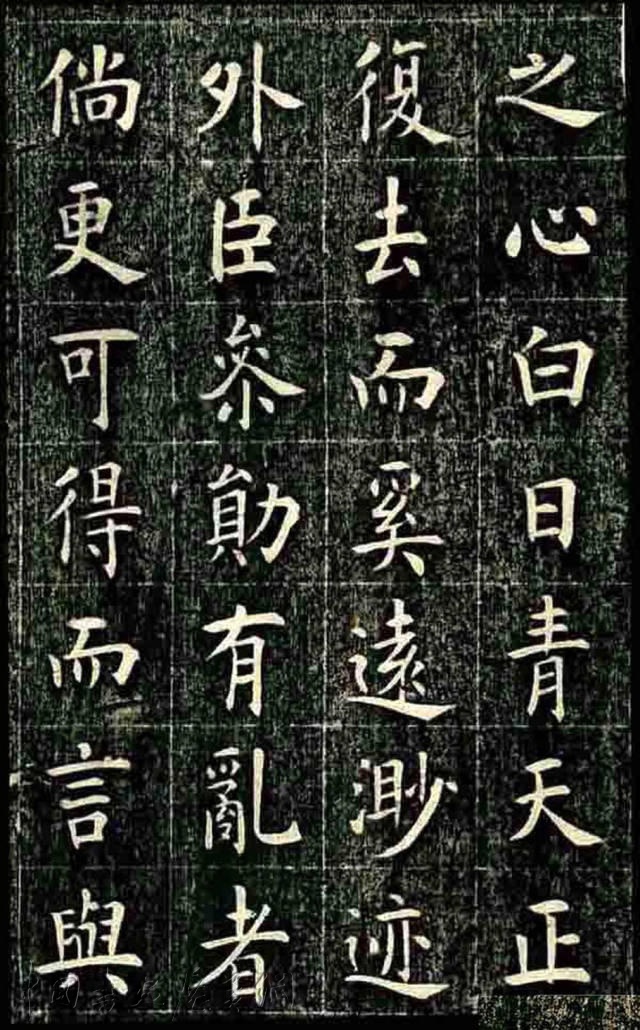 之心白日青天正
復去而奚遠渺迹
外臣叅勛有亂者
倘更可得而言與